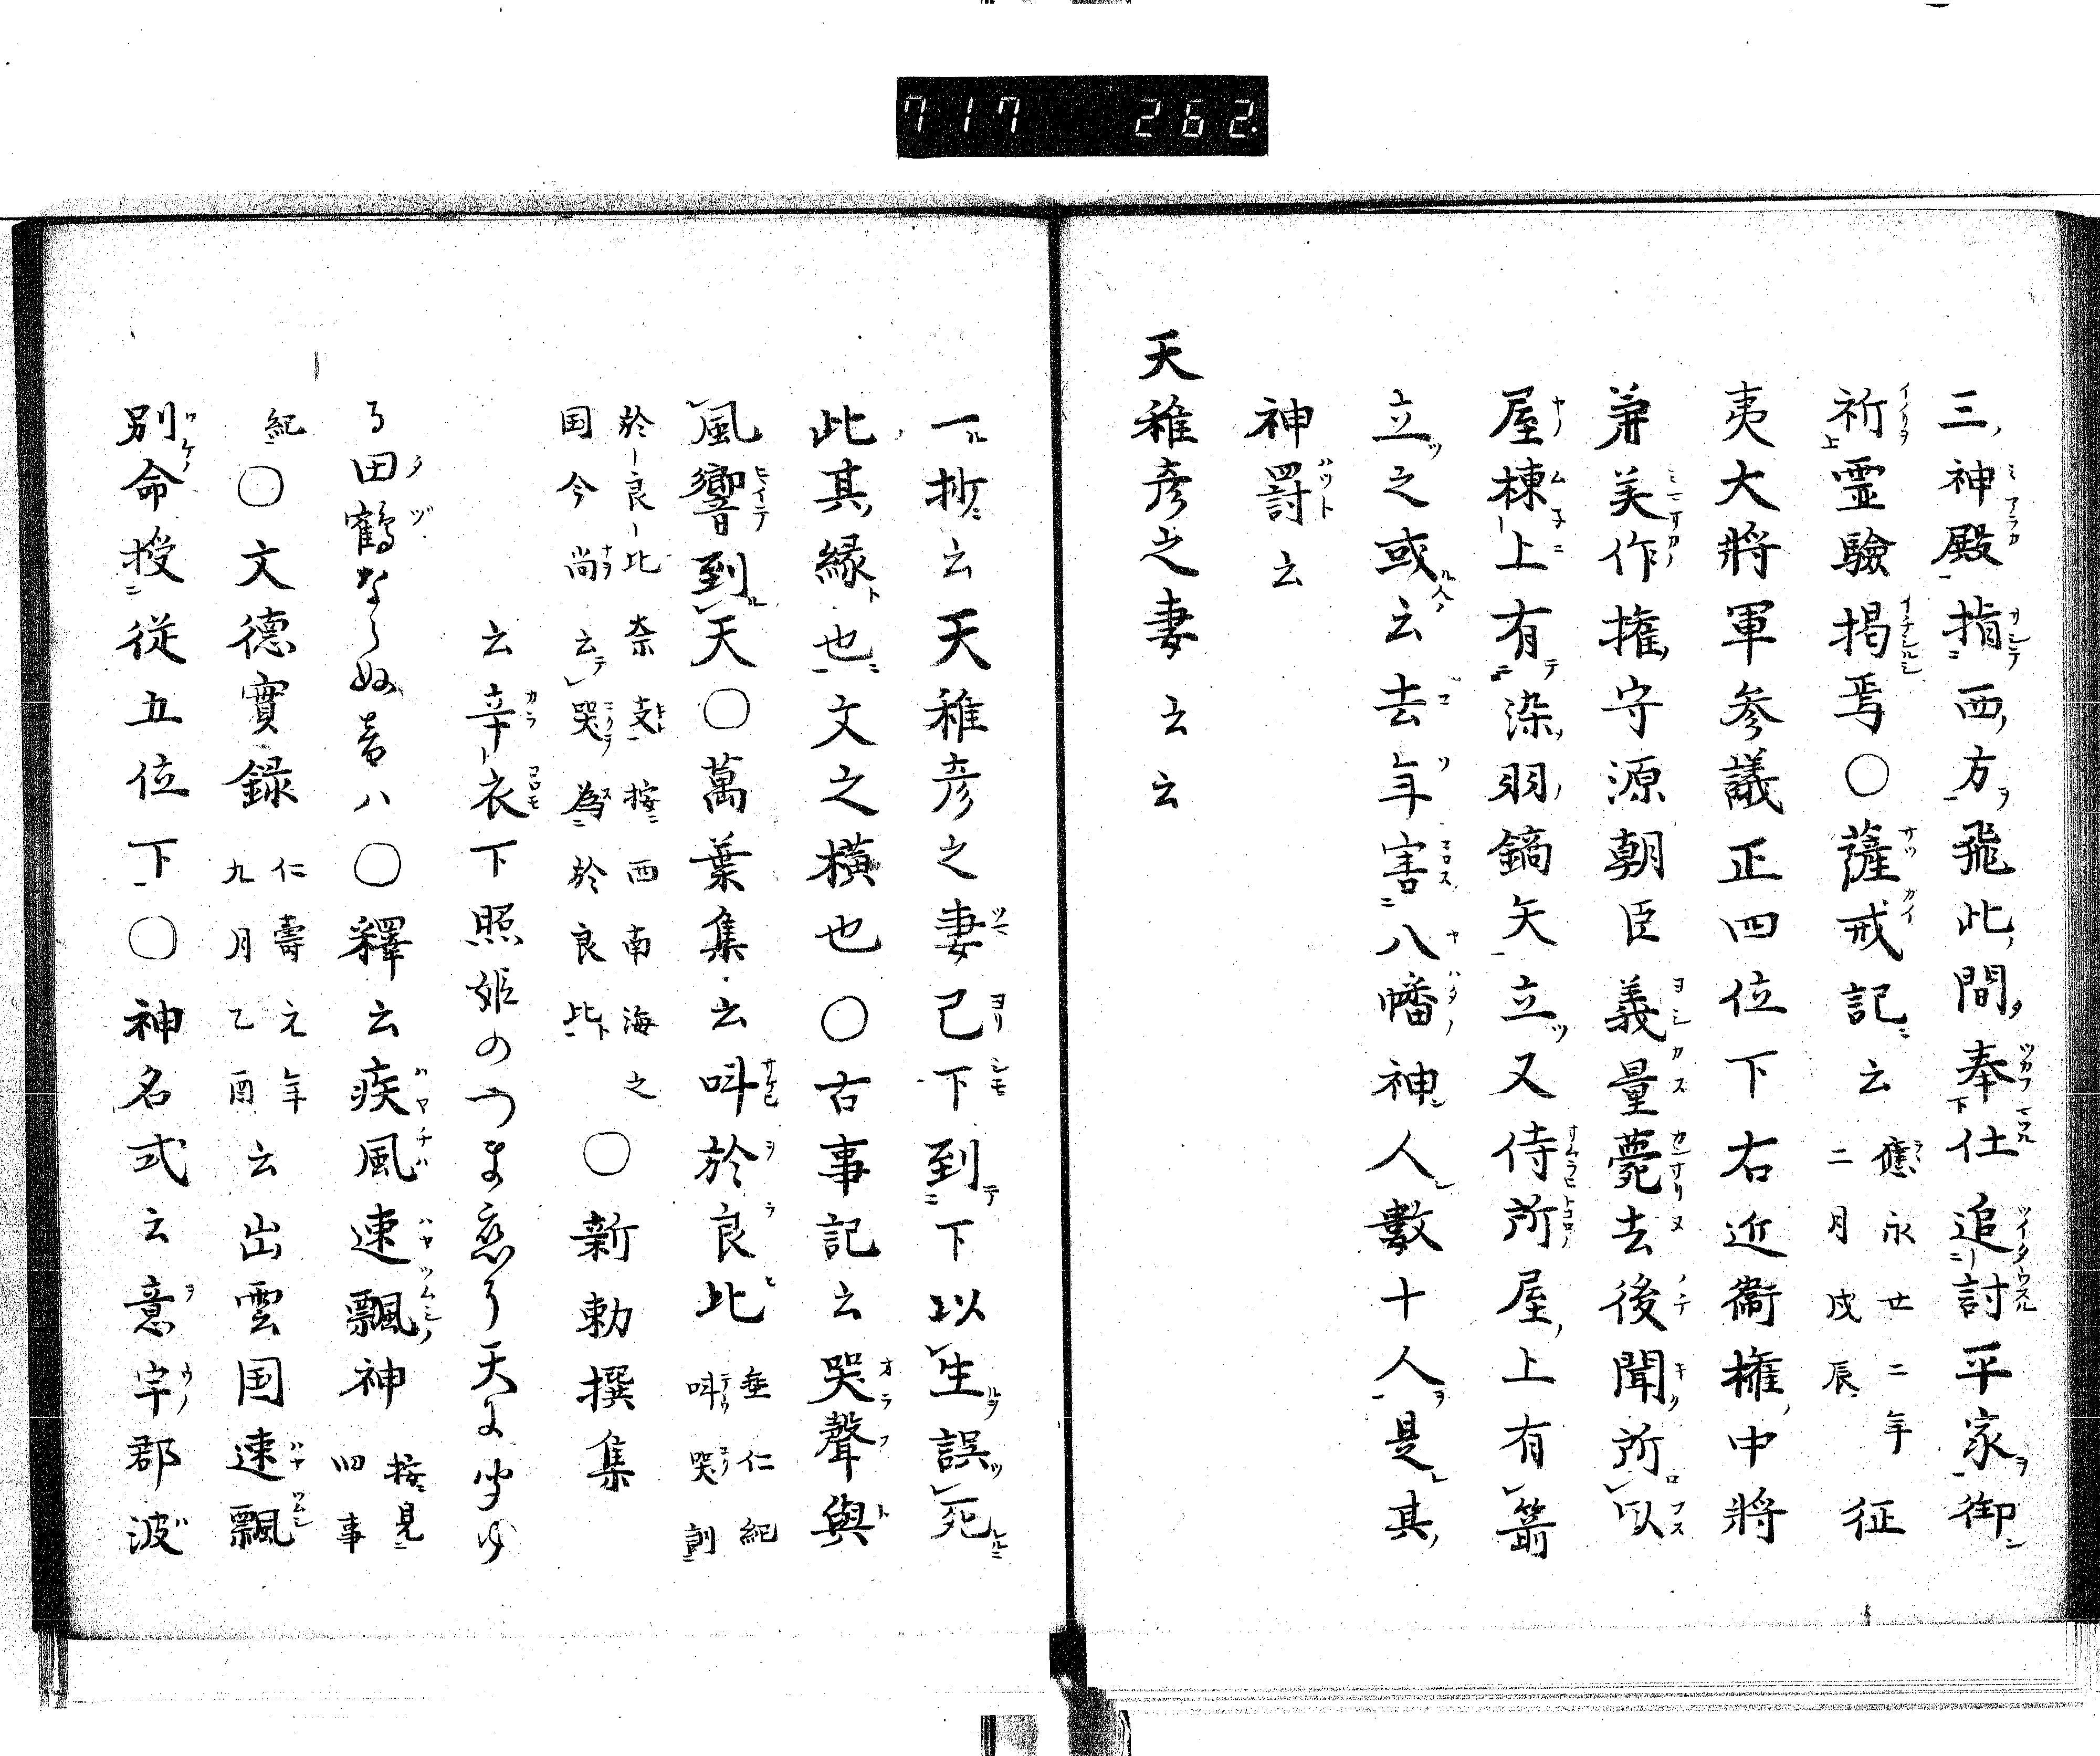 717 262.
三神殿指西方飛此間奉仕追討平家御
祈霊驗掲焉〇薩戒記云應永廿二年二月戊辰征
夷大將軍参議正四位下右近衞権中將
兼美作権守源朝臣義量薨去後聞所以
屋棟上有染羽鏑矢立又侍所屋上有箭
立之或云去年害八幡神人數十人是其
神罰云
天稚彦之妻云云
一抄云天稚彦之妻己下到下以生誤死
此其縁也文之横也〇古事記云哭聲與
風響到天〇萬葉集云叫於良比垂仁紀叫哭創
於良比奈支按西南海之国今尚云哭為於良比〇新勅撰集
云辛衣下照姫のつま恋る天に聞ゆ
る田鶴ならぬ音ハ〇釋云疾風速飄神按見四事
紀〇文德實録仁壽元年九月乙酉云出雲国速飄
別命授従五位下〇神名式云意宇郡波